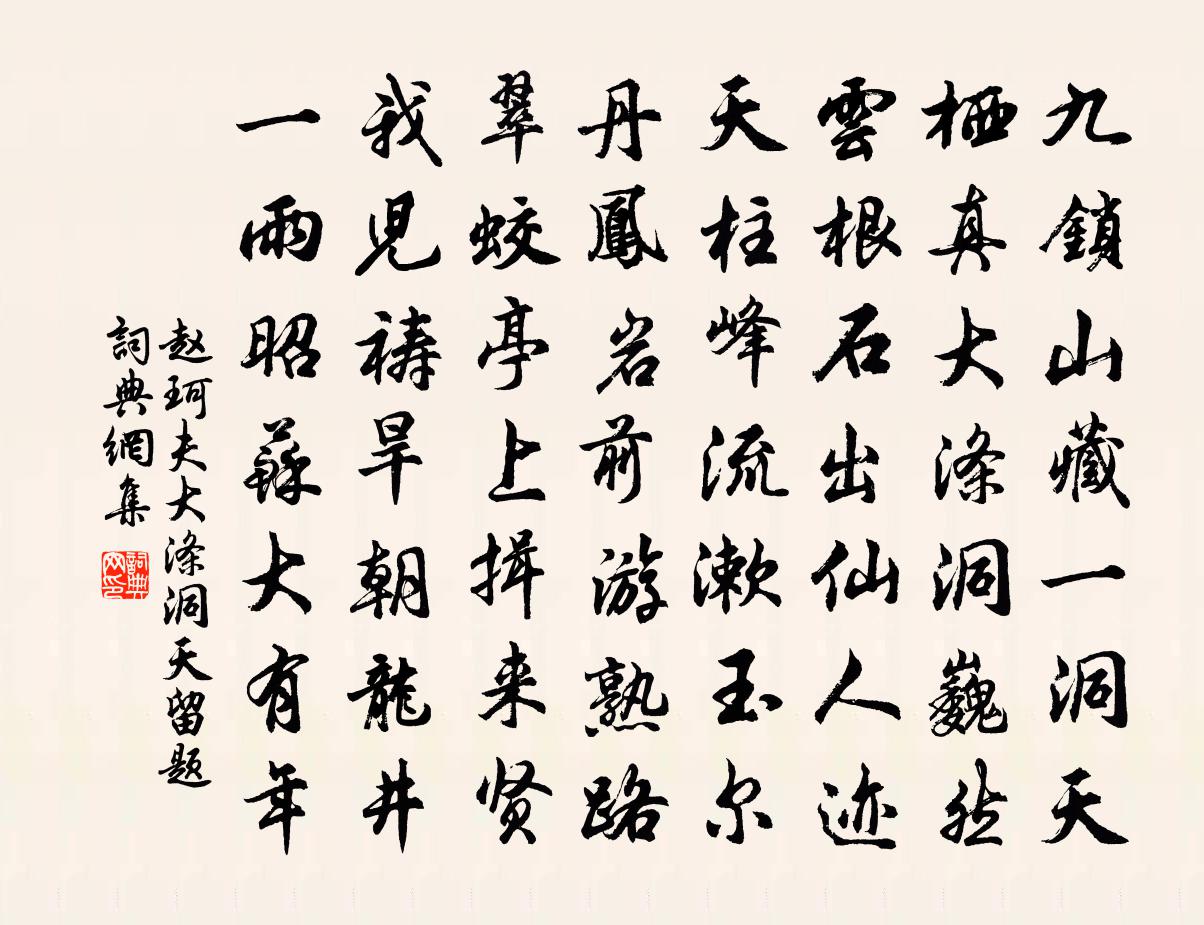 九鎖山藏一洞天
栖真大涤洞巍然
雲根石出仙人迹
天柱峰流漱玉尔
丹鳳岩前游熟路
翠蛟亭上揖来贤
我児祷旱朝龍井
一雨昭蘇大有年
赵珂夫大涤洞天留题
詞典網集
詞典网印